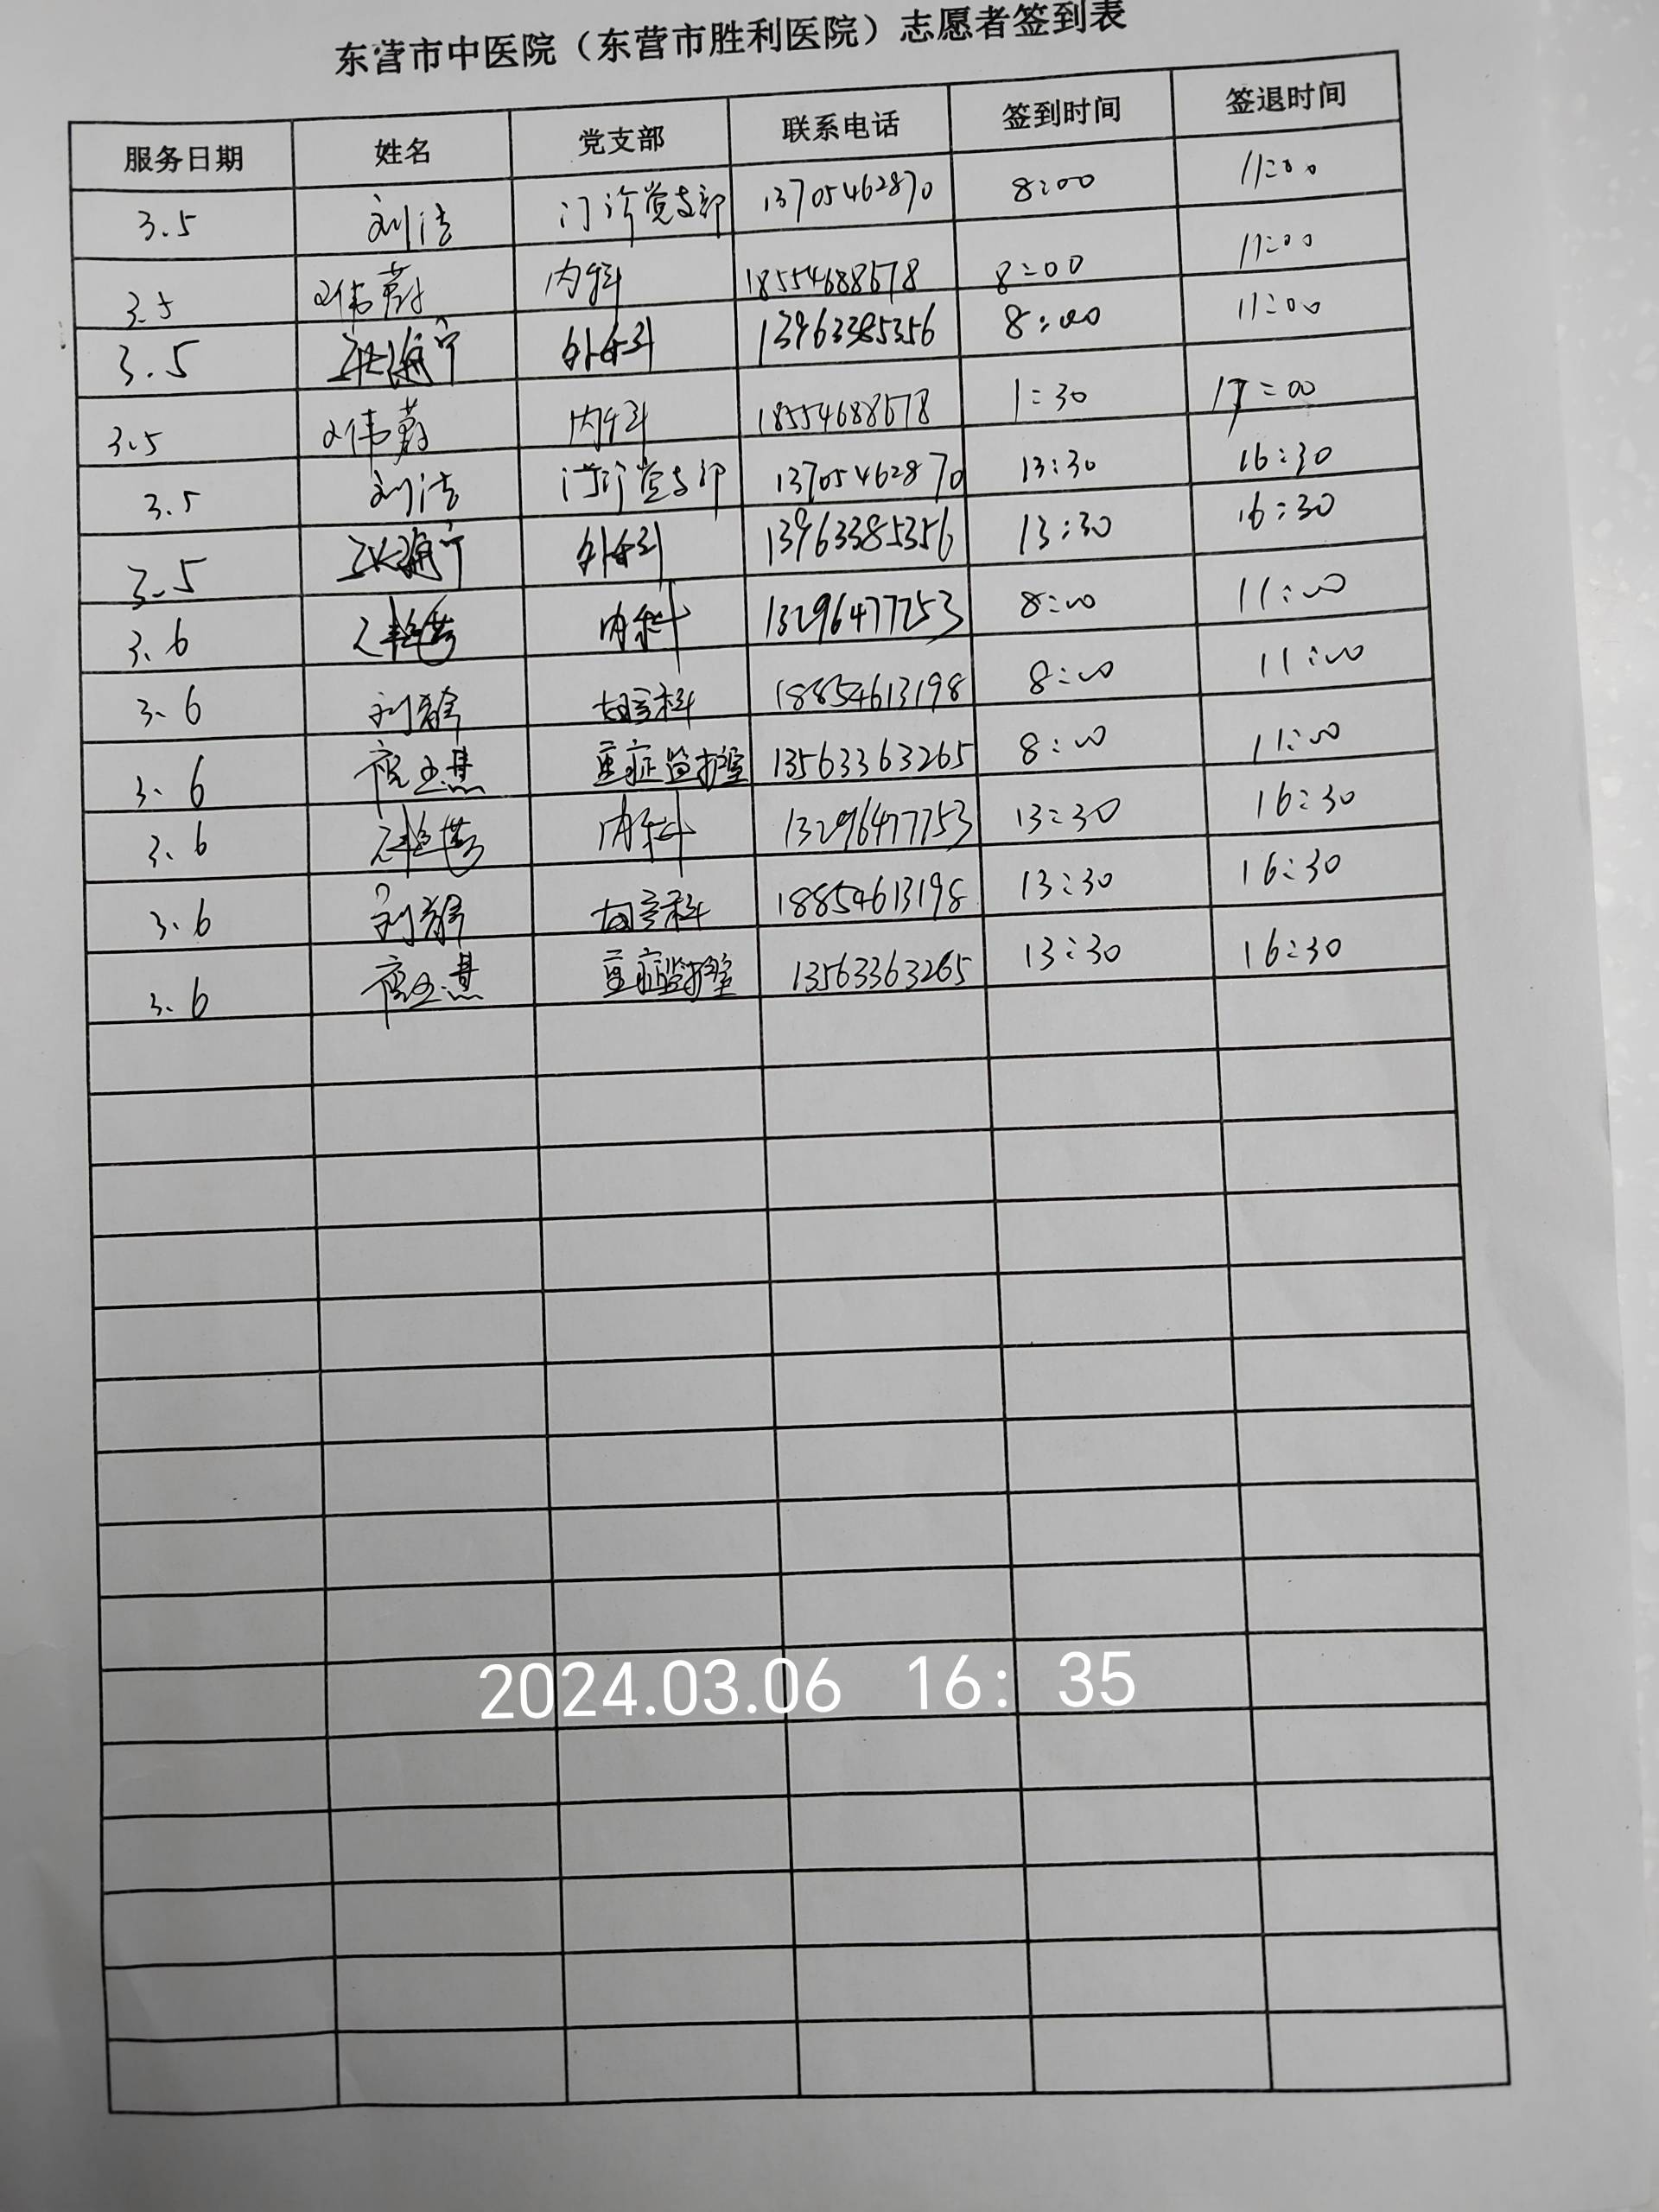 东营市中医院（东营市胜利医院）志愿者签到表
服务日期 姓名 党支部 联系电话 签到时间 签退时间
3.5 刘洁 门诊党支部 13705462870 8:00 11:00
3.5 内科 18554688678 8:00 11:00
3.5 13963385356 8:00 11:00
3.5 内科 18554688678 1:30 17:00
3.5 刘洁 门诊党支部 13705462870 13:30 16:30
3.5 13963385356 13:30 16:30
3.6 内科 13296477253 8:00 11:00
3.6 刘 18854613198 8:00 11:00
3.6 重症监护室 13563363265 8:00 11:00
3.6 内科 13296477253 13:30 16:30
3.6 刘 18854613198 13:30 16:30
3.6 重症监护室 13563363265 13:30 16:30
2024.03.06 16: 35